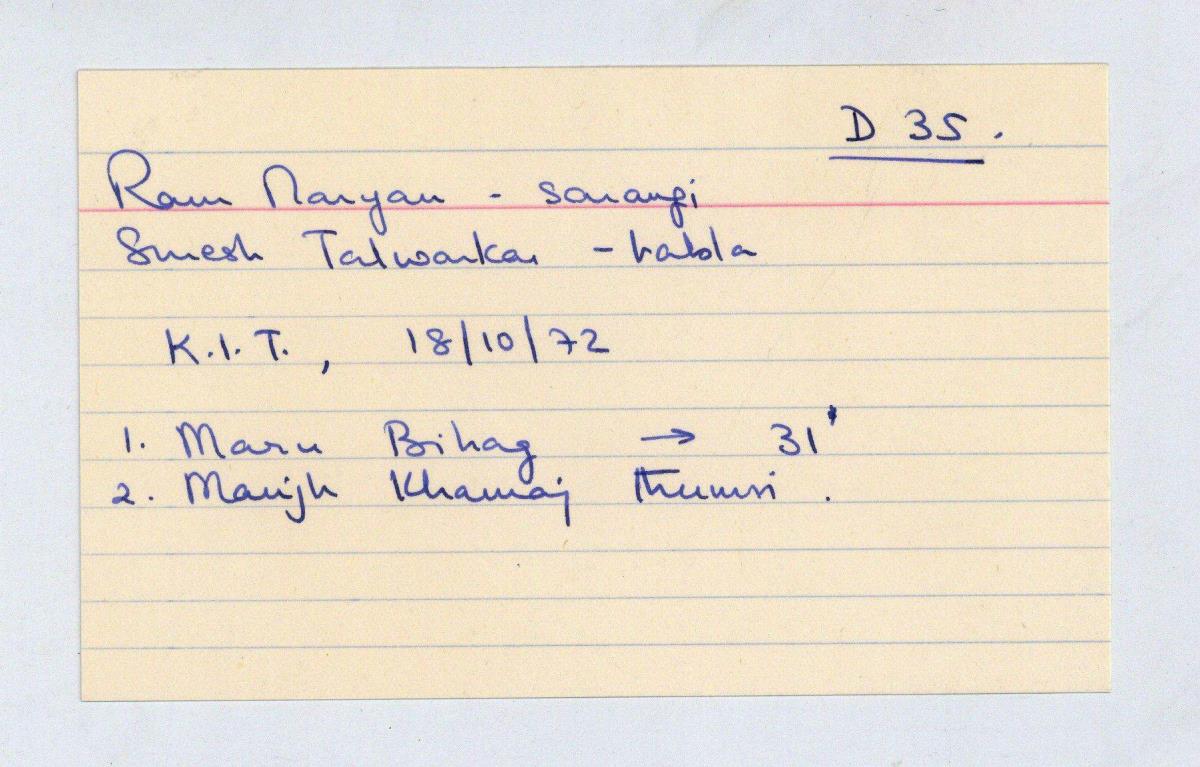 D 35.
Ram Naryan - sarangi
Suresh Talwarkar - tabla
K.I.T., 18/10/72
1. Maru Bihag → 31'
2. Manjh Khamaj thumri.